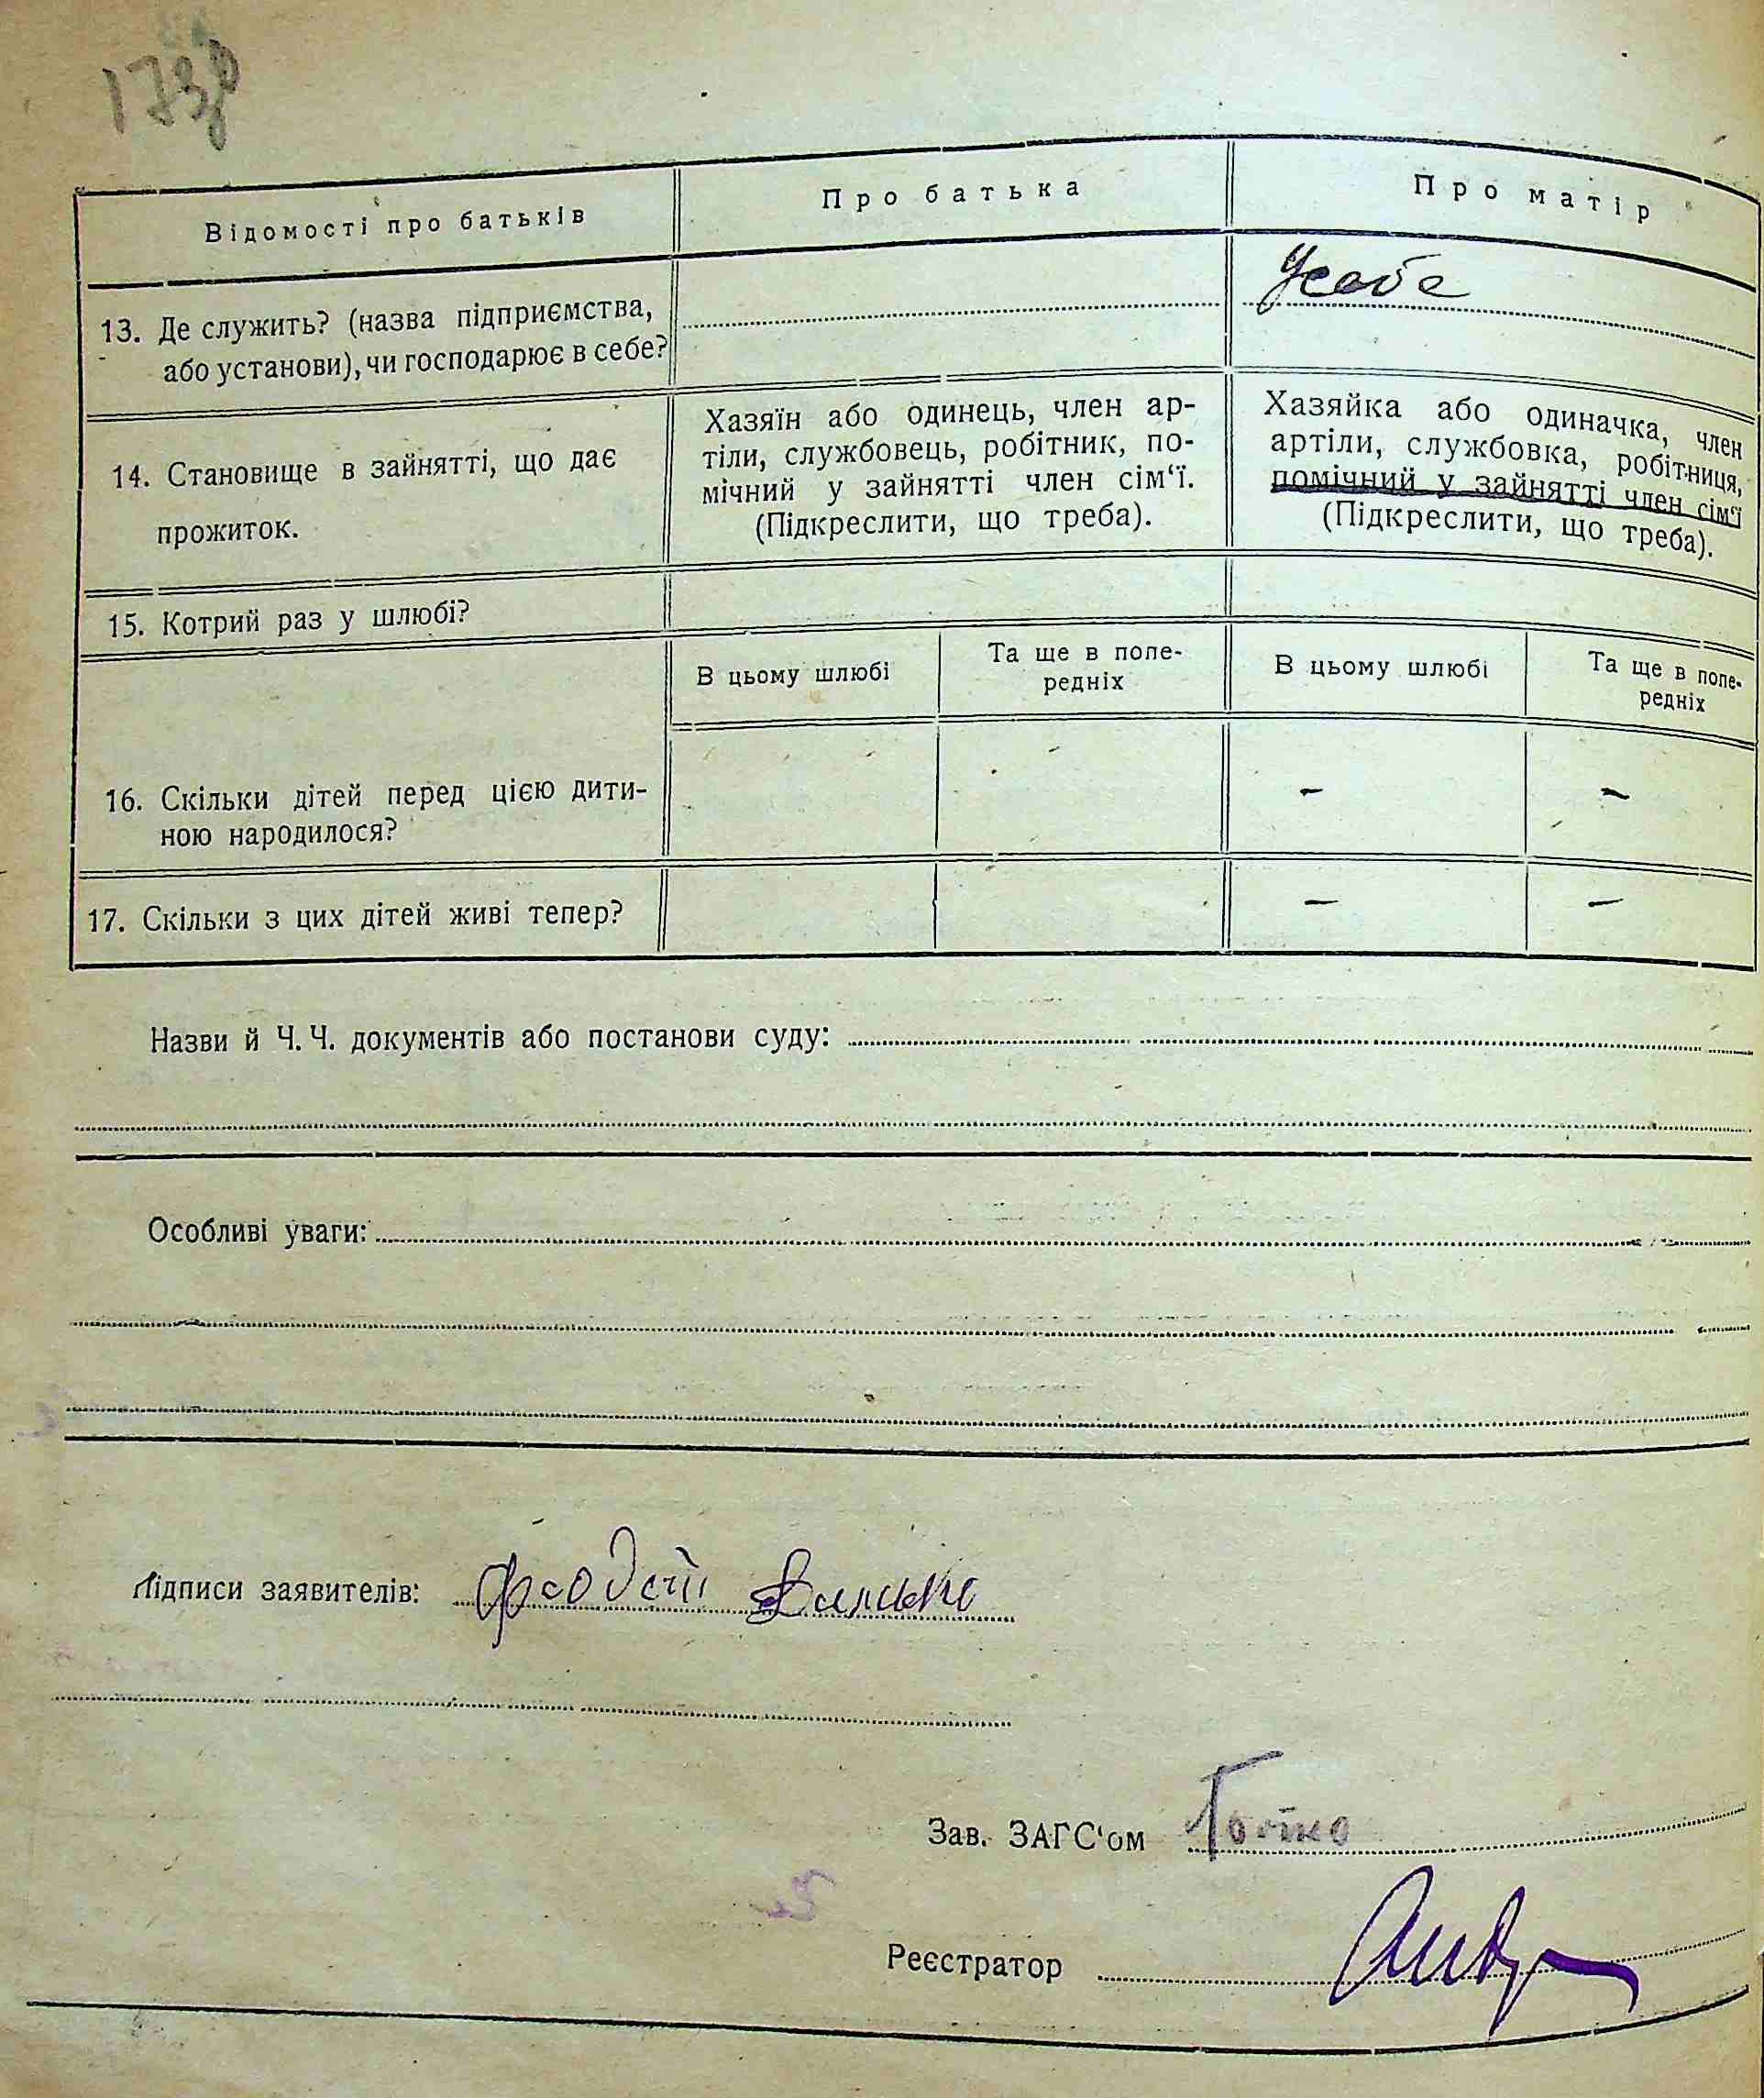 173
Відомості про батьків
Про батька
Про матір
13. Де служить? (назва підприємства,
або установи), чи господарює в себе?
У себе
14. Становище в зайнятті, що дає
прожиток.
Хазяїн або одинець, член ар-
тіли, службовець, робітник, по-
мічний у зайнятті член сім‘ї.
(Підкреслити, що треба).
Хазяйка або одиначка, член
артіли, службовка, робітниця,
помічний у зайнятті член сім‘ї
(Підкреслити, що треба).
15. Котрий раз у шлюбі?
В цьому шлюбі
Та ще в попе-
редніх
В цьому шлюбі
Та ще в попе-
редніх
16. Скільки дітей перед цією дити-
ною народилося?
-
-
17. Скільки з цих дітей живі тепер?
-
-
Назви й Ч. Ч. документів або постанови суду:
Особливі уваги:
Підписи заявителів:
Зав. ЗАГС‘ом
Реєстратор